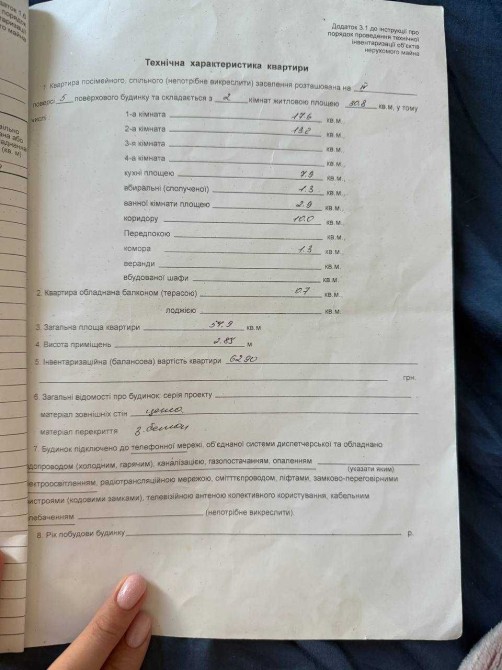 Додаток 3.1 до інструкції про
порядок проведення технічної
інвентаризації об'єктів
нерухомого майна
Технічна характеристика квартири
1. Квартира посімейного, спільного (непотрібне викреслити) заселення розташована на
поверсі 5 поверхового будинку та складається з 2 кімнат житловою площею 30.8 кв.м, у тому
числі
1-а кімната 17.6 кв.м.,
2-а кімната 13.2 кв.м.,
3-я кімната кв.м.,
4-а кімната кв.м.,
кухні площею 7.9 кв.м.,
вбиральні (сполученої) 1.3 кв.м.,
ванної кімнати площею 2.9 кв.м.,
коридору 10.0 кв.м.,
Передпокою кв.м.,
комора 1.3 кв.м.
веранди кв.м.
вбудованої шафи кв.м.
2. Квартира обладнана балконом (терасою) 0.7 кв.м.
лоджією кв.м.
3. Загальна площа квартири 54.9 кв.м
4. Висота приміщень 2.85 м
5. Інвентаризаційна (балансова) вартість квартири 6290
грн.
6. Загальні відомості про будинок: серія проекту
матеріал зовнішніх стін цегла
матеріал перекриття з бетон
7. Будинок підключено до телефонної мережі, об'єднаної системи диспетчерської та обладнано
водопроводом (холодним, гарячим), каналізацією, газопостачанням, опаленням
(указати яким)
електроосвітленням, радіотрансляційною мережою, сміттєпроводом, ліфтами, замково-переговорними
пристроями (кодовими замками), телевізійною антеною колективного користування, кабельним
телебаченням (непотрібне викреслити).
8. Рік побудови будинку р.